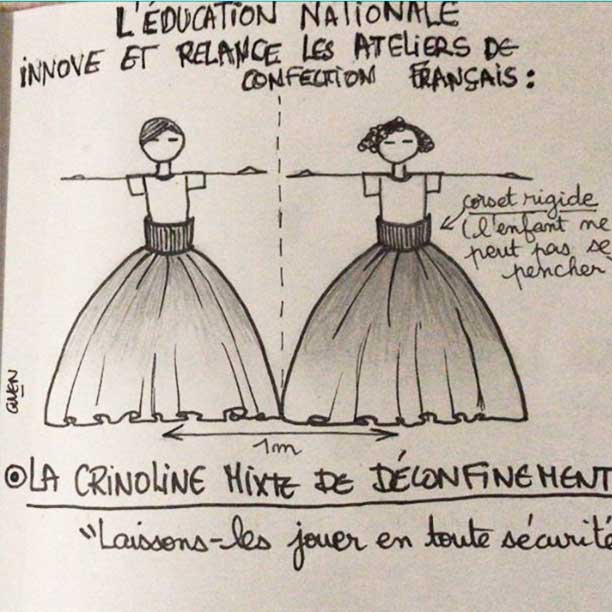 L'ÉDUCATION NATIONALE
INNOVE ET RELANCE LES ATELIERS DE
CONFECTION FRANÇAIS :
corset rigide
(l'enfant ne
peut pas se
pencher
GWEN
1m
LA CRINOLINE MIXTE DE DÉCONFINEMENT
"Laissons-les jouer en toute sécurité